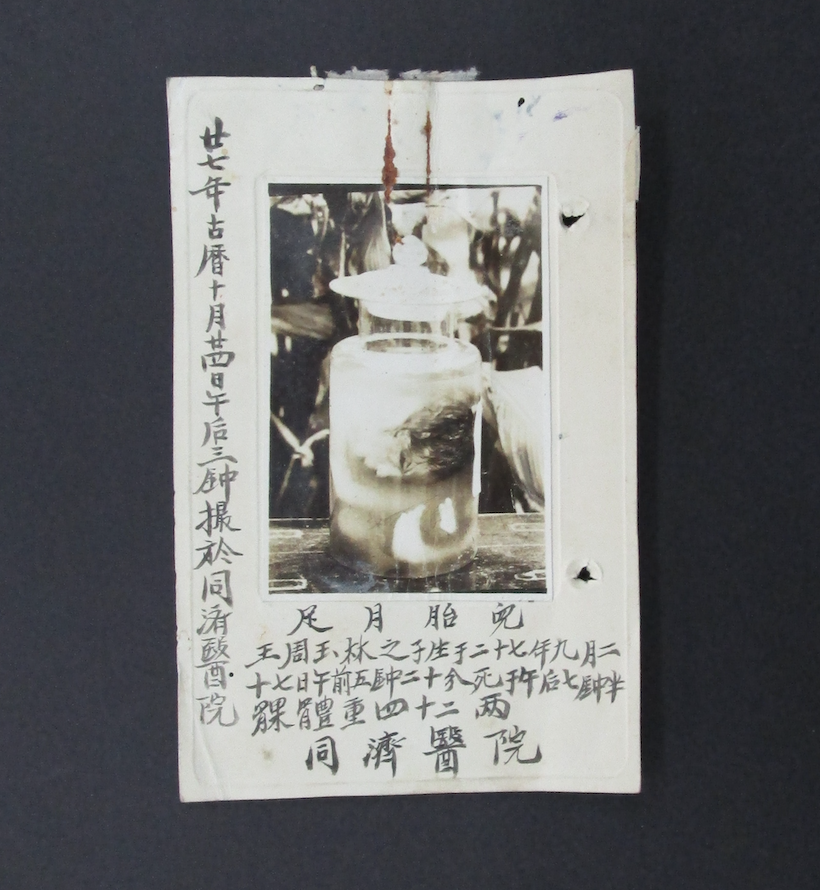 廿七年古暦十月廿四日午后三鈡撮於同済醫院
足月胎兒
王周玉林之子生于二十七年九月二
十七日午前五鈡二十分死于午后七鈡半
髁體重四十二两
同濟醫院